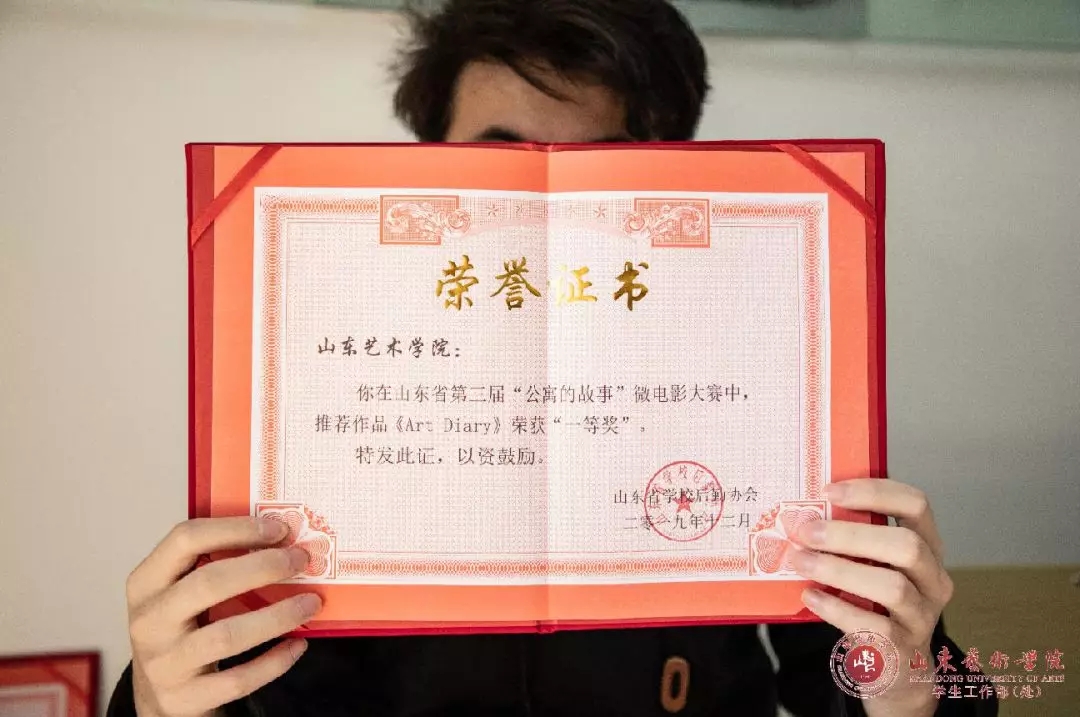 荣誉证书
山东艺术学院：
你在山东省第三届“公寓的故事”微电影大赛中，
推荐作品《Art Diary》荣获“一等奖”。
特发此证，以资鼓励。
山东省学校后勤协会
二零一九年十二月
山东艺术学院
SHANDONG UNIVERSITY OF ARTS
学生工作部(处)